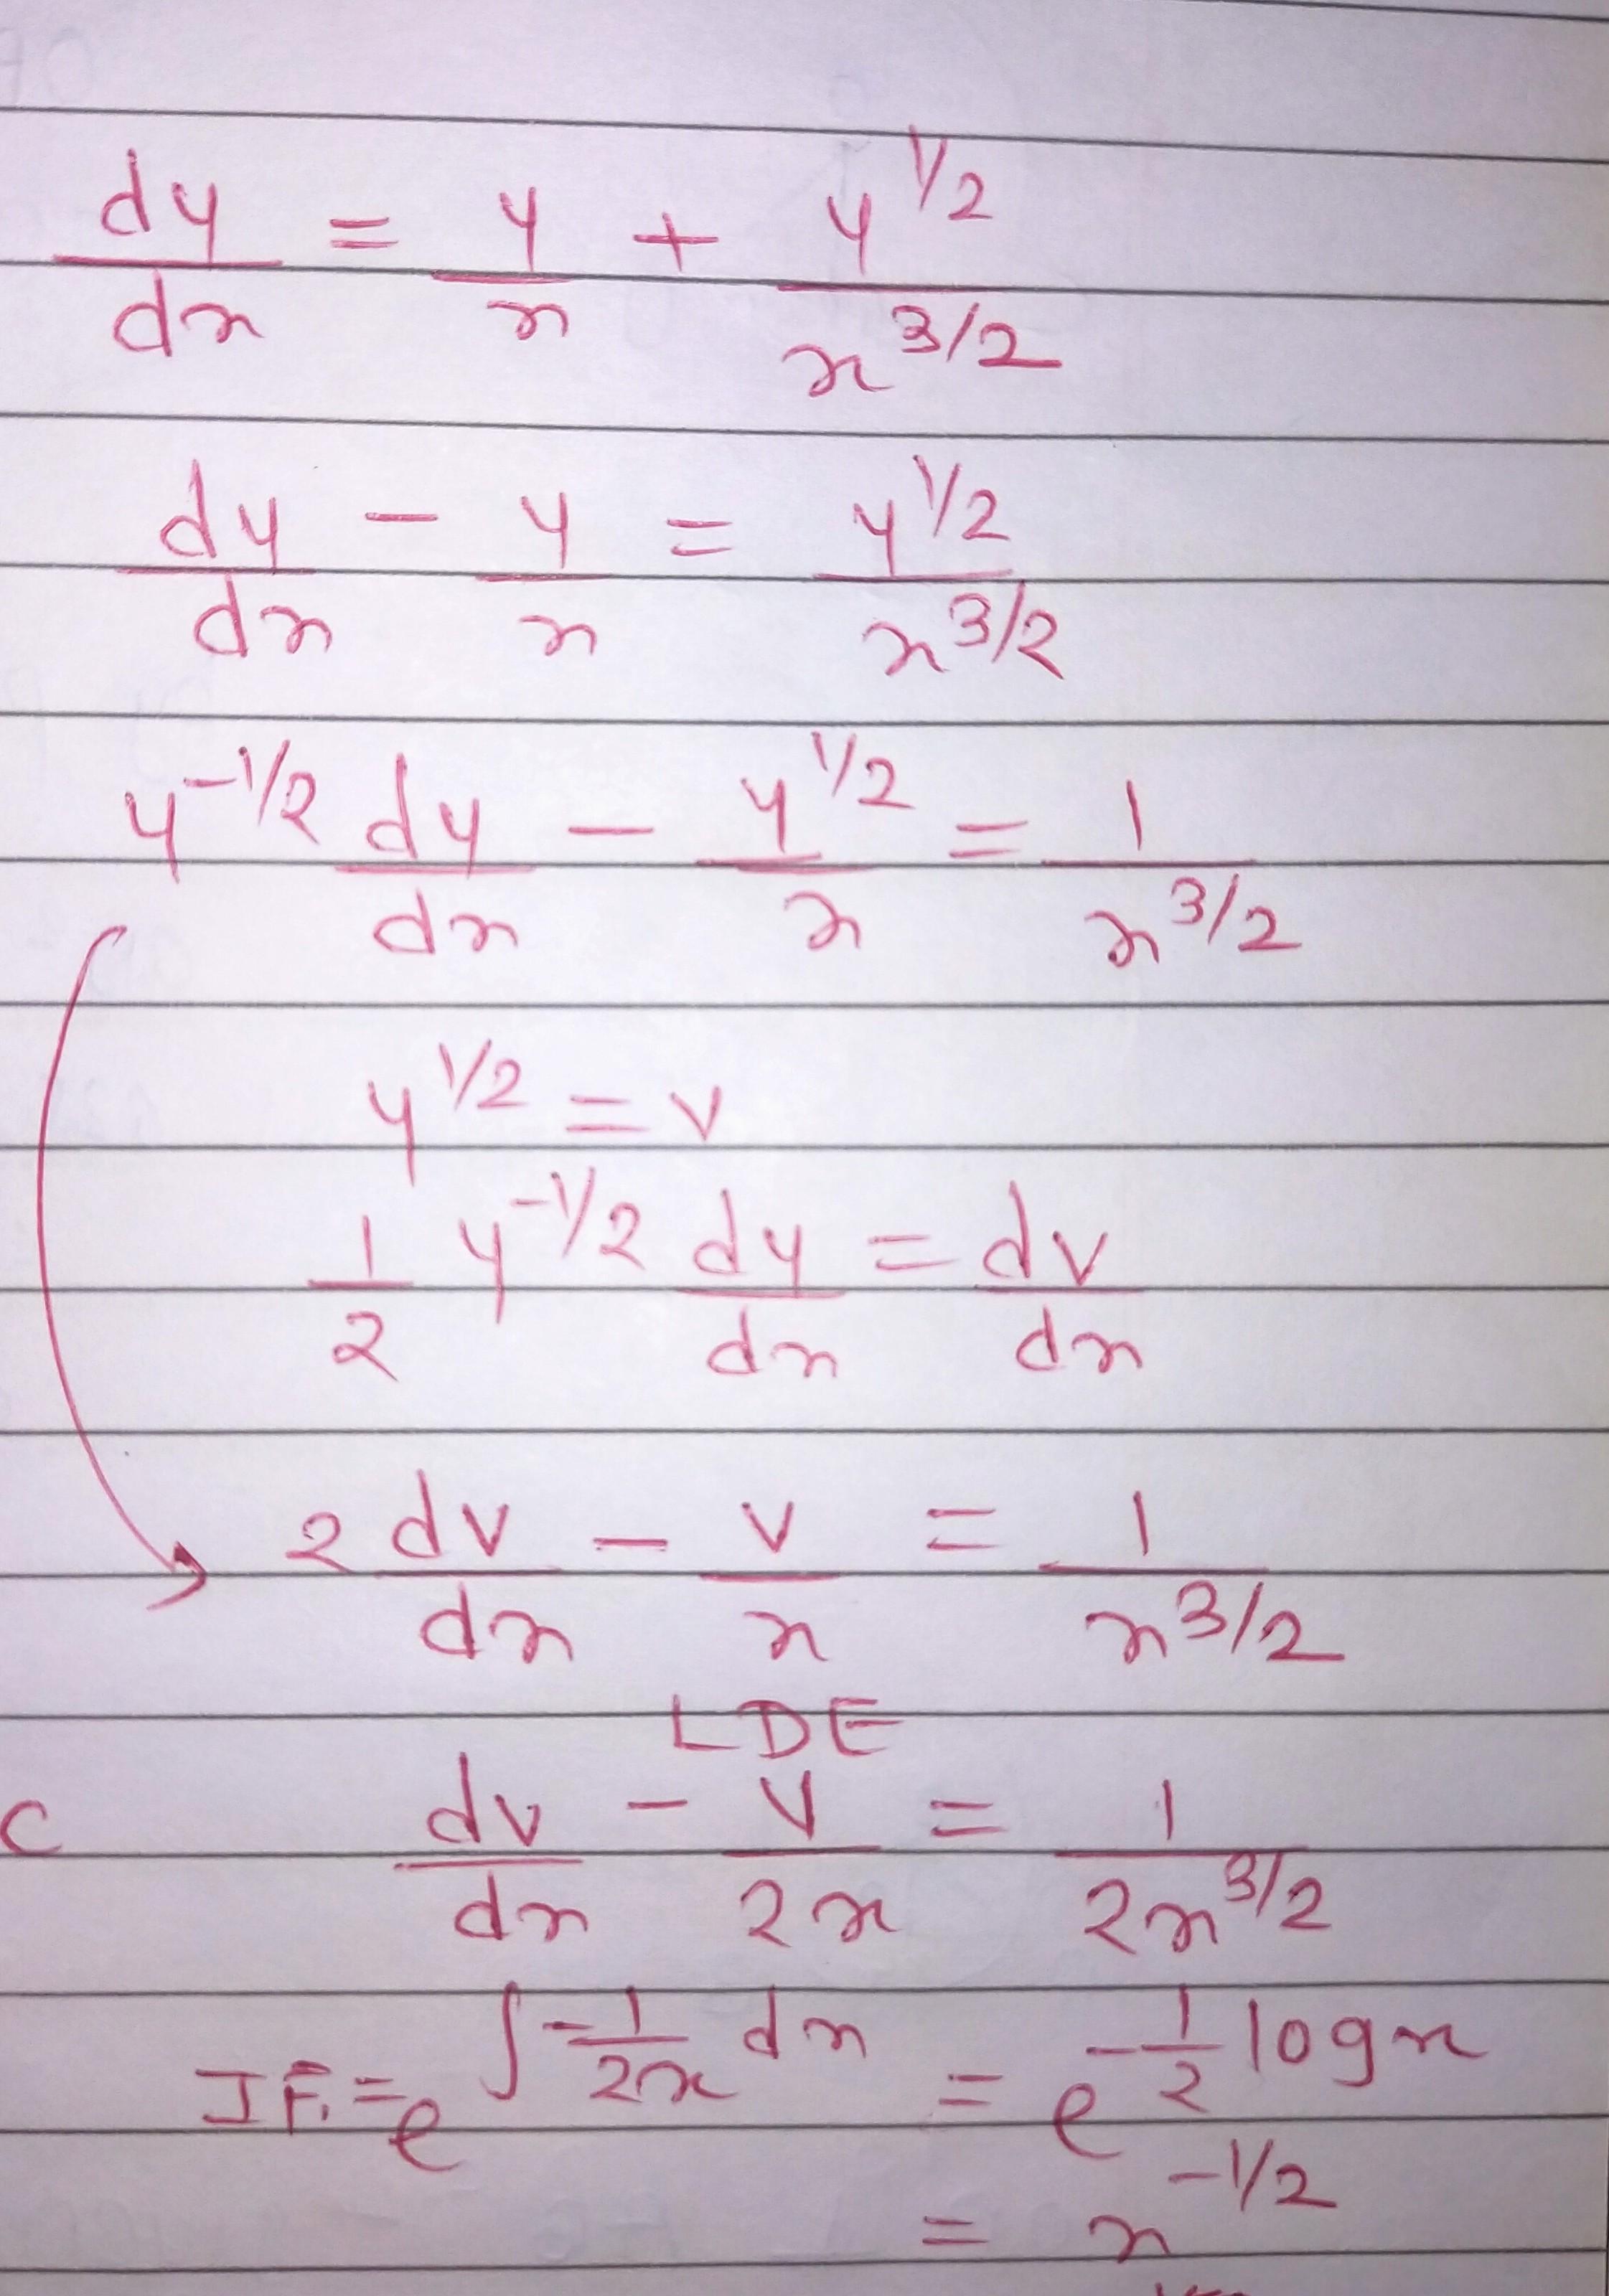 dy/dx = y/x + y^1/2/x^3/2
dy/dx - y/x = y^1/2/x^3/2
y^-1/2 dy/dx - y^1/2/x = 1/x^3/2
y^1/2 = v
1/2 y^-1/2 dy/dx = dv/dx
2 dv/dx - v/x = 1/x^3/2
LDE
c dv/dx - v/2x = 1/2x^3/2
I.F. = e^∫-1/2x dx = e^-1/2 log x
= x^-1/2